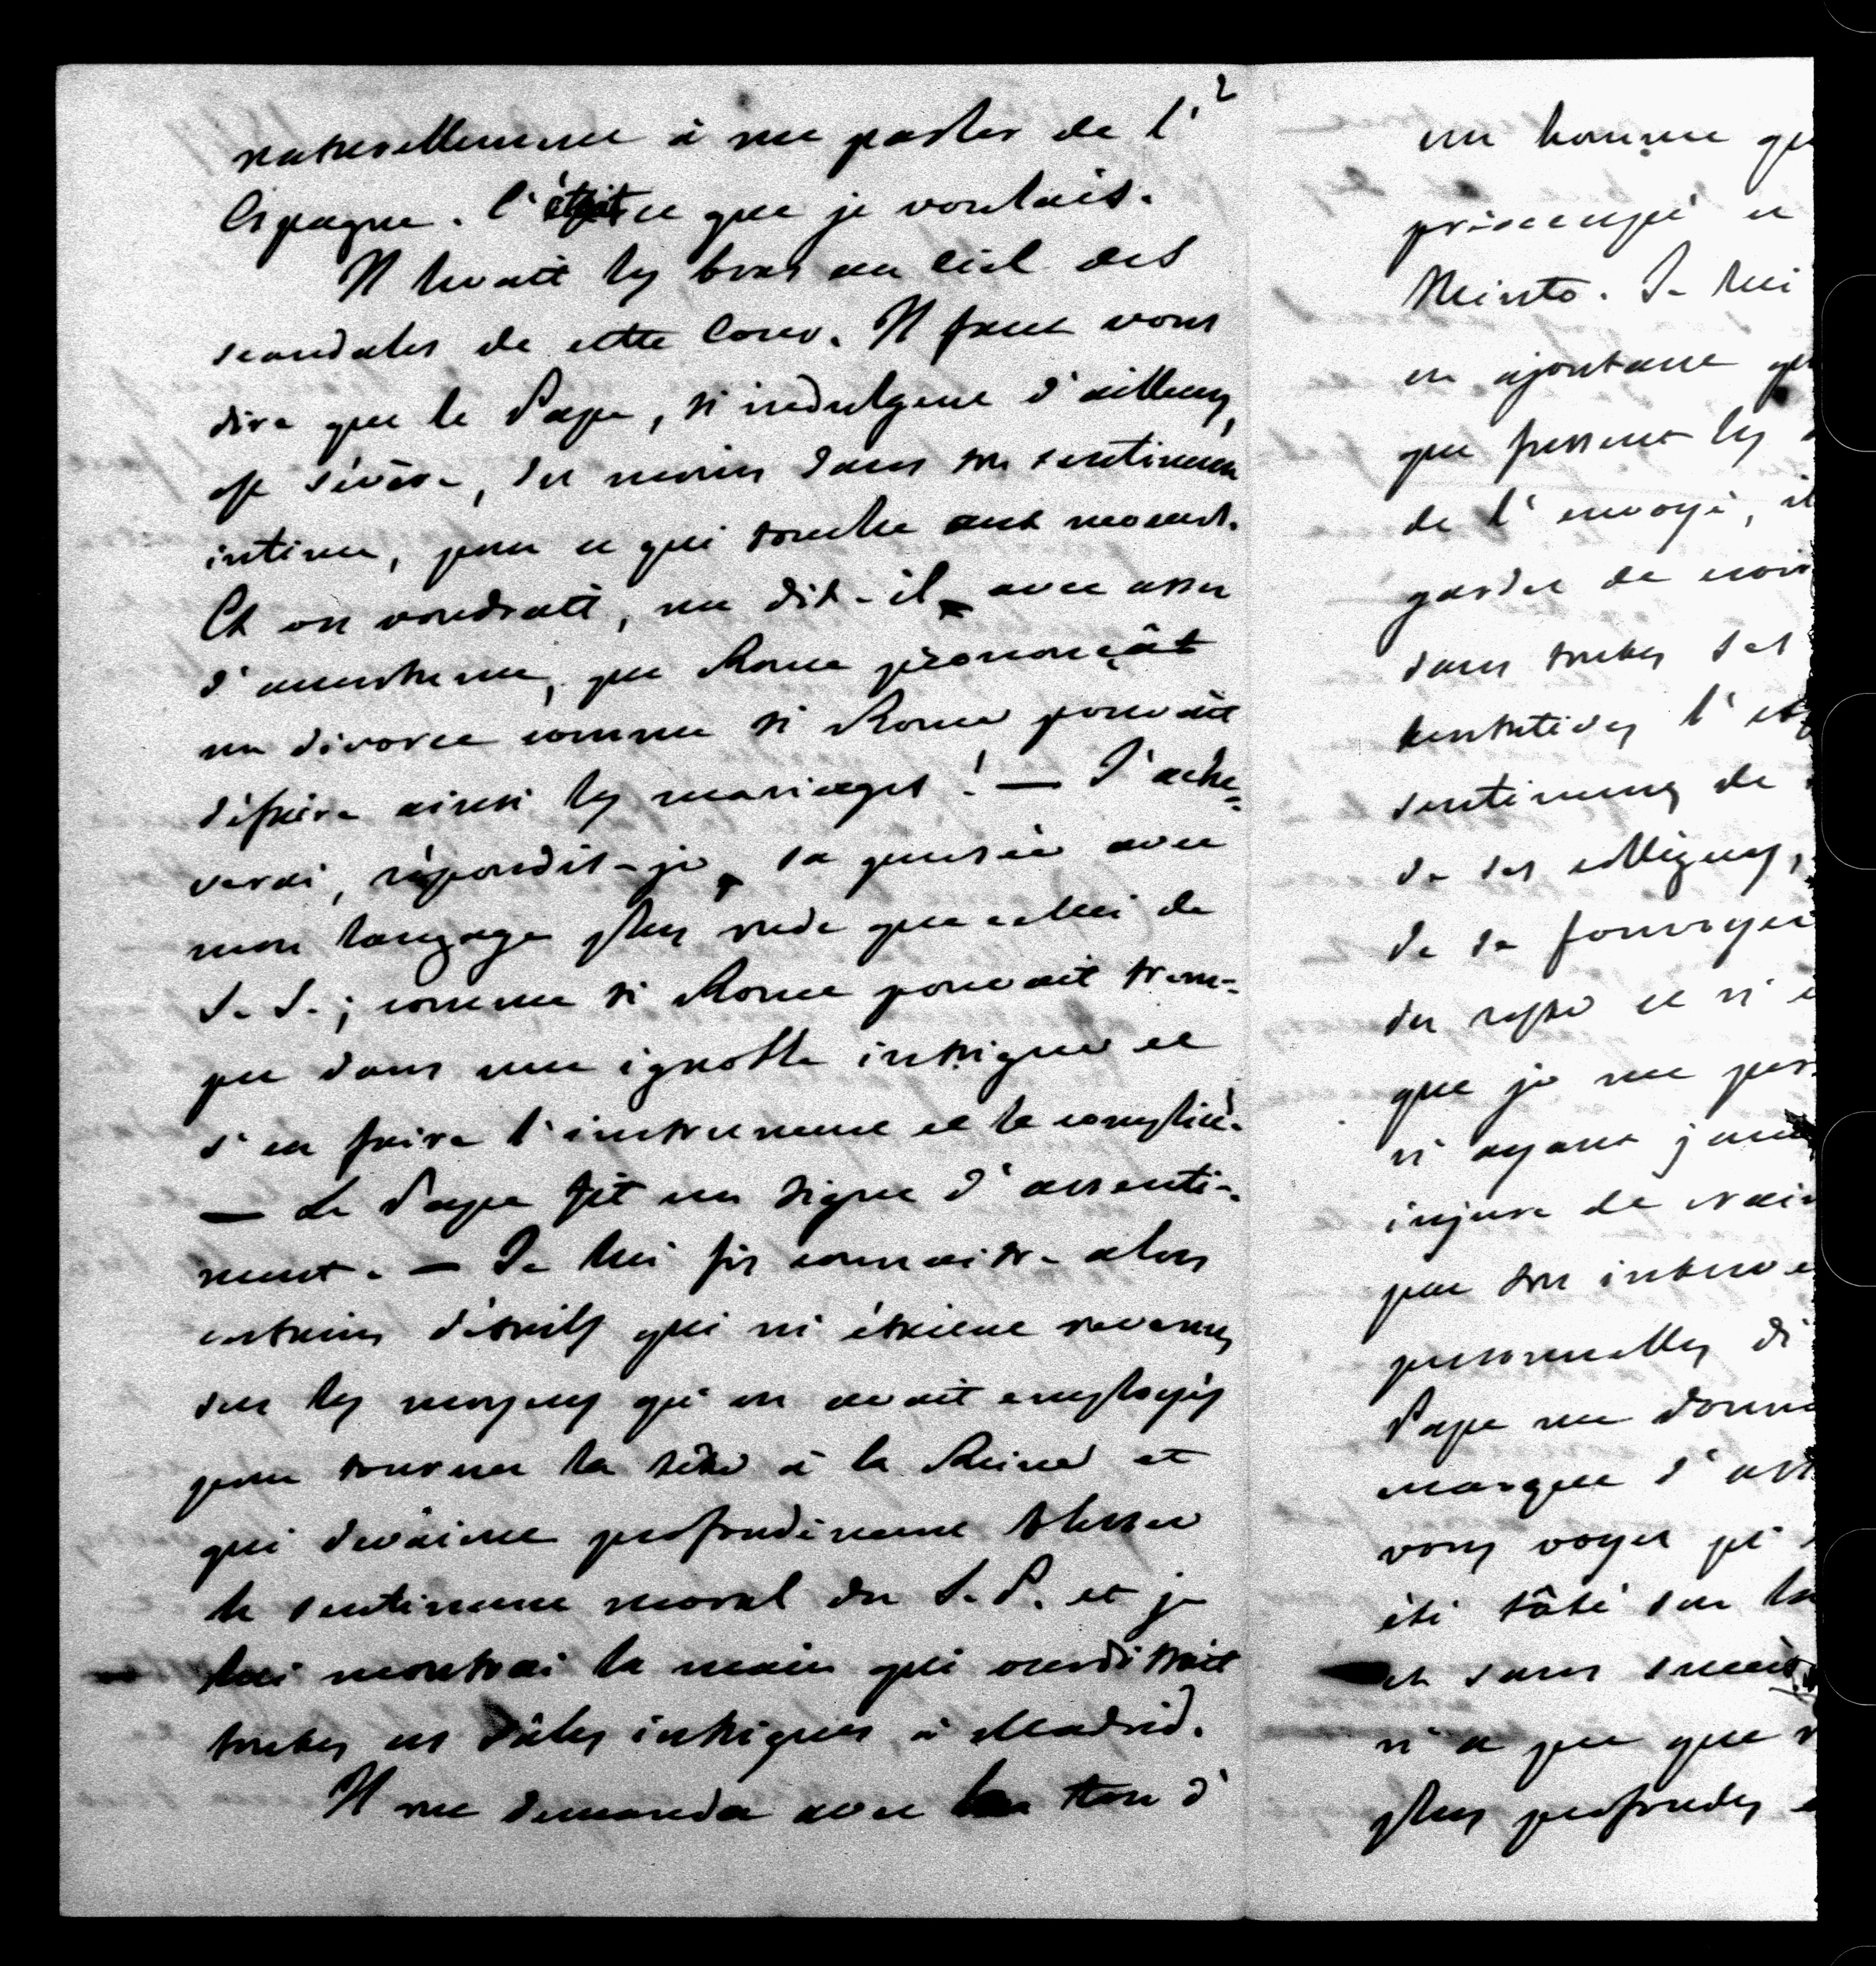 2
naturellement à me parler de l'
Espagne. C'était ce que je voulais.
Il levait les bras au ciel des
scandales de cette Cour. Il faut vous
dire que le Pape, si indulgent d'ailleurs,
est sévère, du moins dans son sentiment
intime, pour ce qui touche aux mœurs.
Et on voudrait, me dit-il, avec assez
d'amertume, que Rome prononçât
un divorce comme si Rome pouvait
défaire ainsi les mariages! — J'ache-
verai, répondis-je, sa pensée avec
mon langage plus rude que celui de
S. S.; comme si Rome pouvait trem-
per dans une ignoble intrigue et
s'en faire l'instrument et le complice.
— Le Pape fit un signe d'assenti-
ment. — Je lui fis connaître alors
certains détails qui m'étaient revenus
sur les moyens qu'on avait employés
pour tourner la tête à la Reine et
qui devaient profondément blesser
le sentiment moral du S. P. et je
lui montrai la main qui ourdissait
toutes ces sales intrigues à Madrid.
Il me demanda avec le ton d'
un homme qu
préoccupé et
Minto. Je lui
en ajoutant qu
que fussent les
de l'envoyé, il
garder de croir
dans toutes ses
tentatives l'
sentiments de
de ses collègues,
de se fourvoyer
du reste et n'
que je me per
n'ayant jamai
injure de crain
par son interve
personnelles di
Pape me donna
marque d'
vous voyez qu'
été tâté sur la
et sans succès
n'a pu que
plus profondes